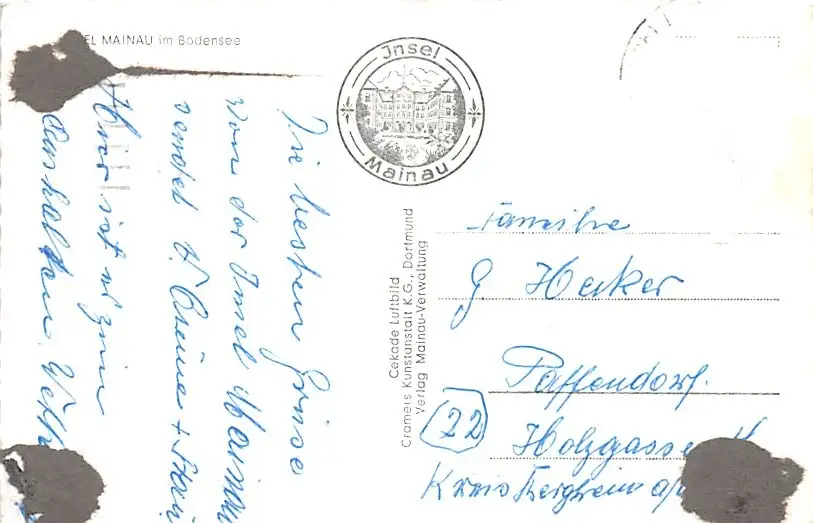 INSEL MAINAU im Bodensee
Insel
Mainau
Die besten Grüsse
von der Insel Mainau
sendet
Hier ist es zum
Aushalten.
Cekade Luftbild
Cramers Kunstanstalt K.G., Dortmund
Verlag Mainau-Verwaltung
Familie
G Heker
Paffendorf.
22
Holzgasse
Kreis Bergheim a/